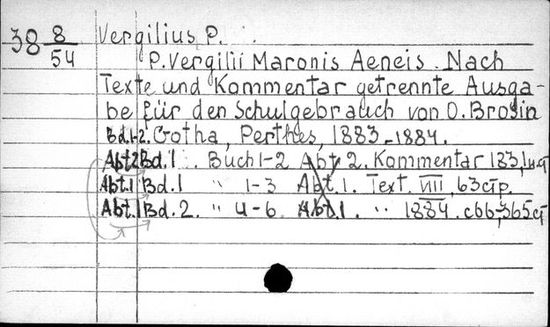 38 8/54 Vergilius P.
P. Vergilii Maronis Aeneis. Nach
Texte und Kommentar getrennte Ausga-
be für den Schulgebrauch von O. Brosin
Bd. 1-2. Gotha, Perthes, 1883-1884.
Abt. 2 Bd. 1 Buch 1-2 Abt. 2. Kommentar 183,
Abt. 1 Bd. 1 " 1-3 Abt. 1. Text. VIII, 63 стр.
Abt. 1 Bd. 2. " 4-6 Abt. 1. " 1884. с 66-365 ст